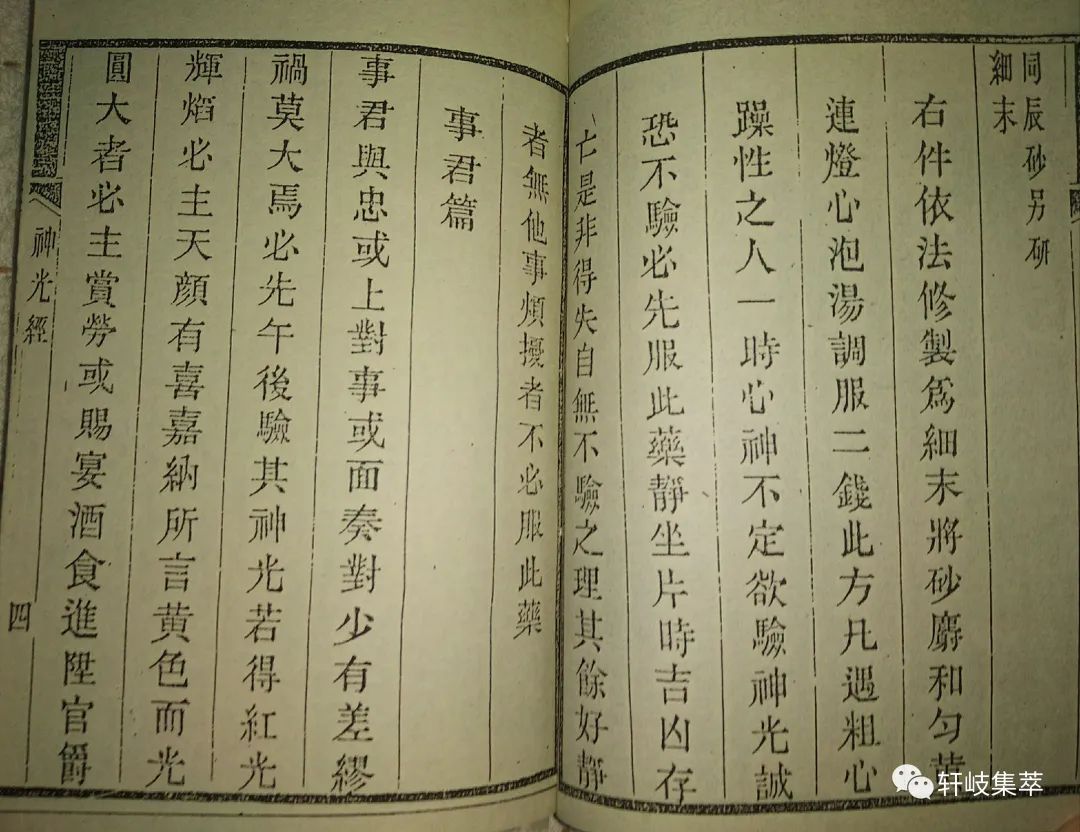 同辰砂另研
細末
右件依法修製爲細末將砂麝和勻黄
連燈心泡湯調服二錢此方凡遇粗心
躁性之人一時心神不定欲驗神光誠
恐不驗必先服此藥靜坐片時吉凶存
亡是非得失自無不驗之理其餘好靜
者無他事煩擾者不必服此藥
事君篇
事君與忠或上對事或面奏對少有差繆
禍莫大焉必先午後驗其神光若得紅光
輝焰必主天顔有喜嘉納所言黄色而光
圓大者必主賞勞或賜宴酒食進陞官爵
神光經
四
轩岐集萃